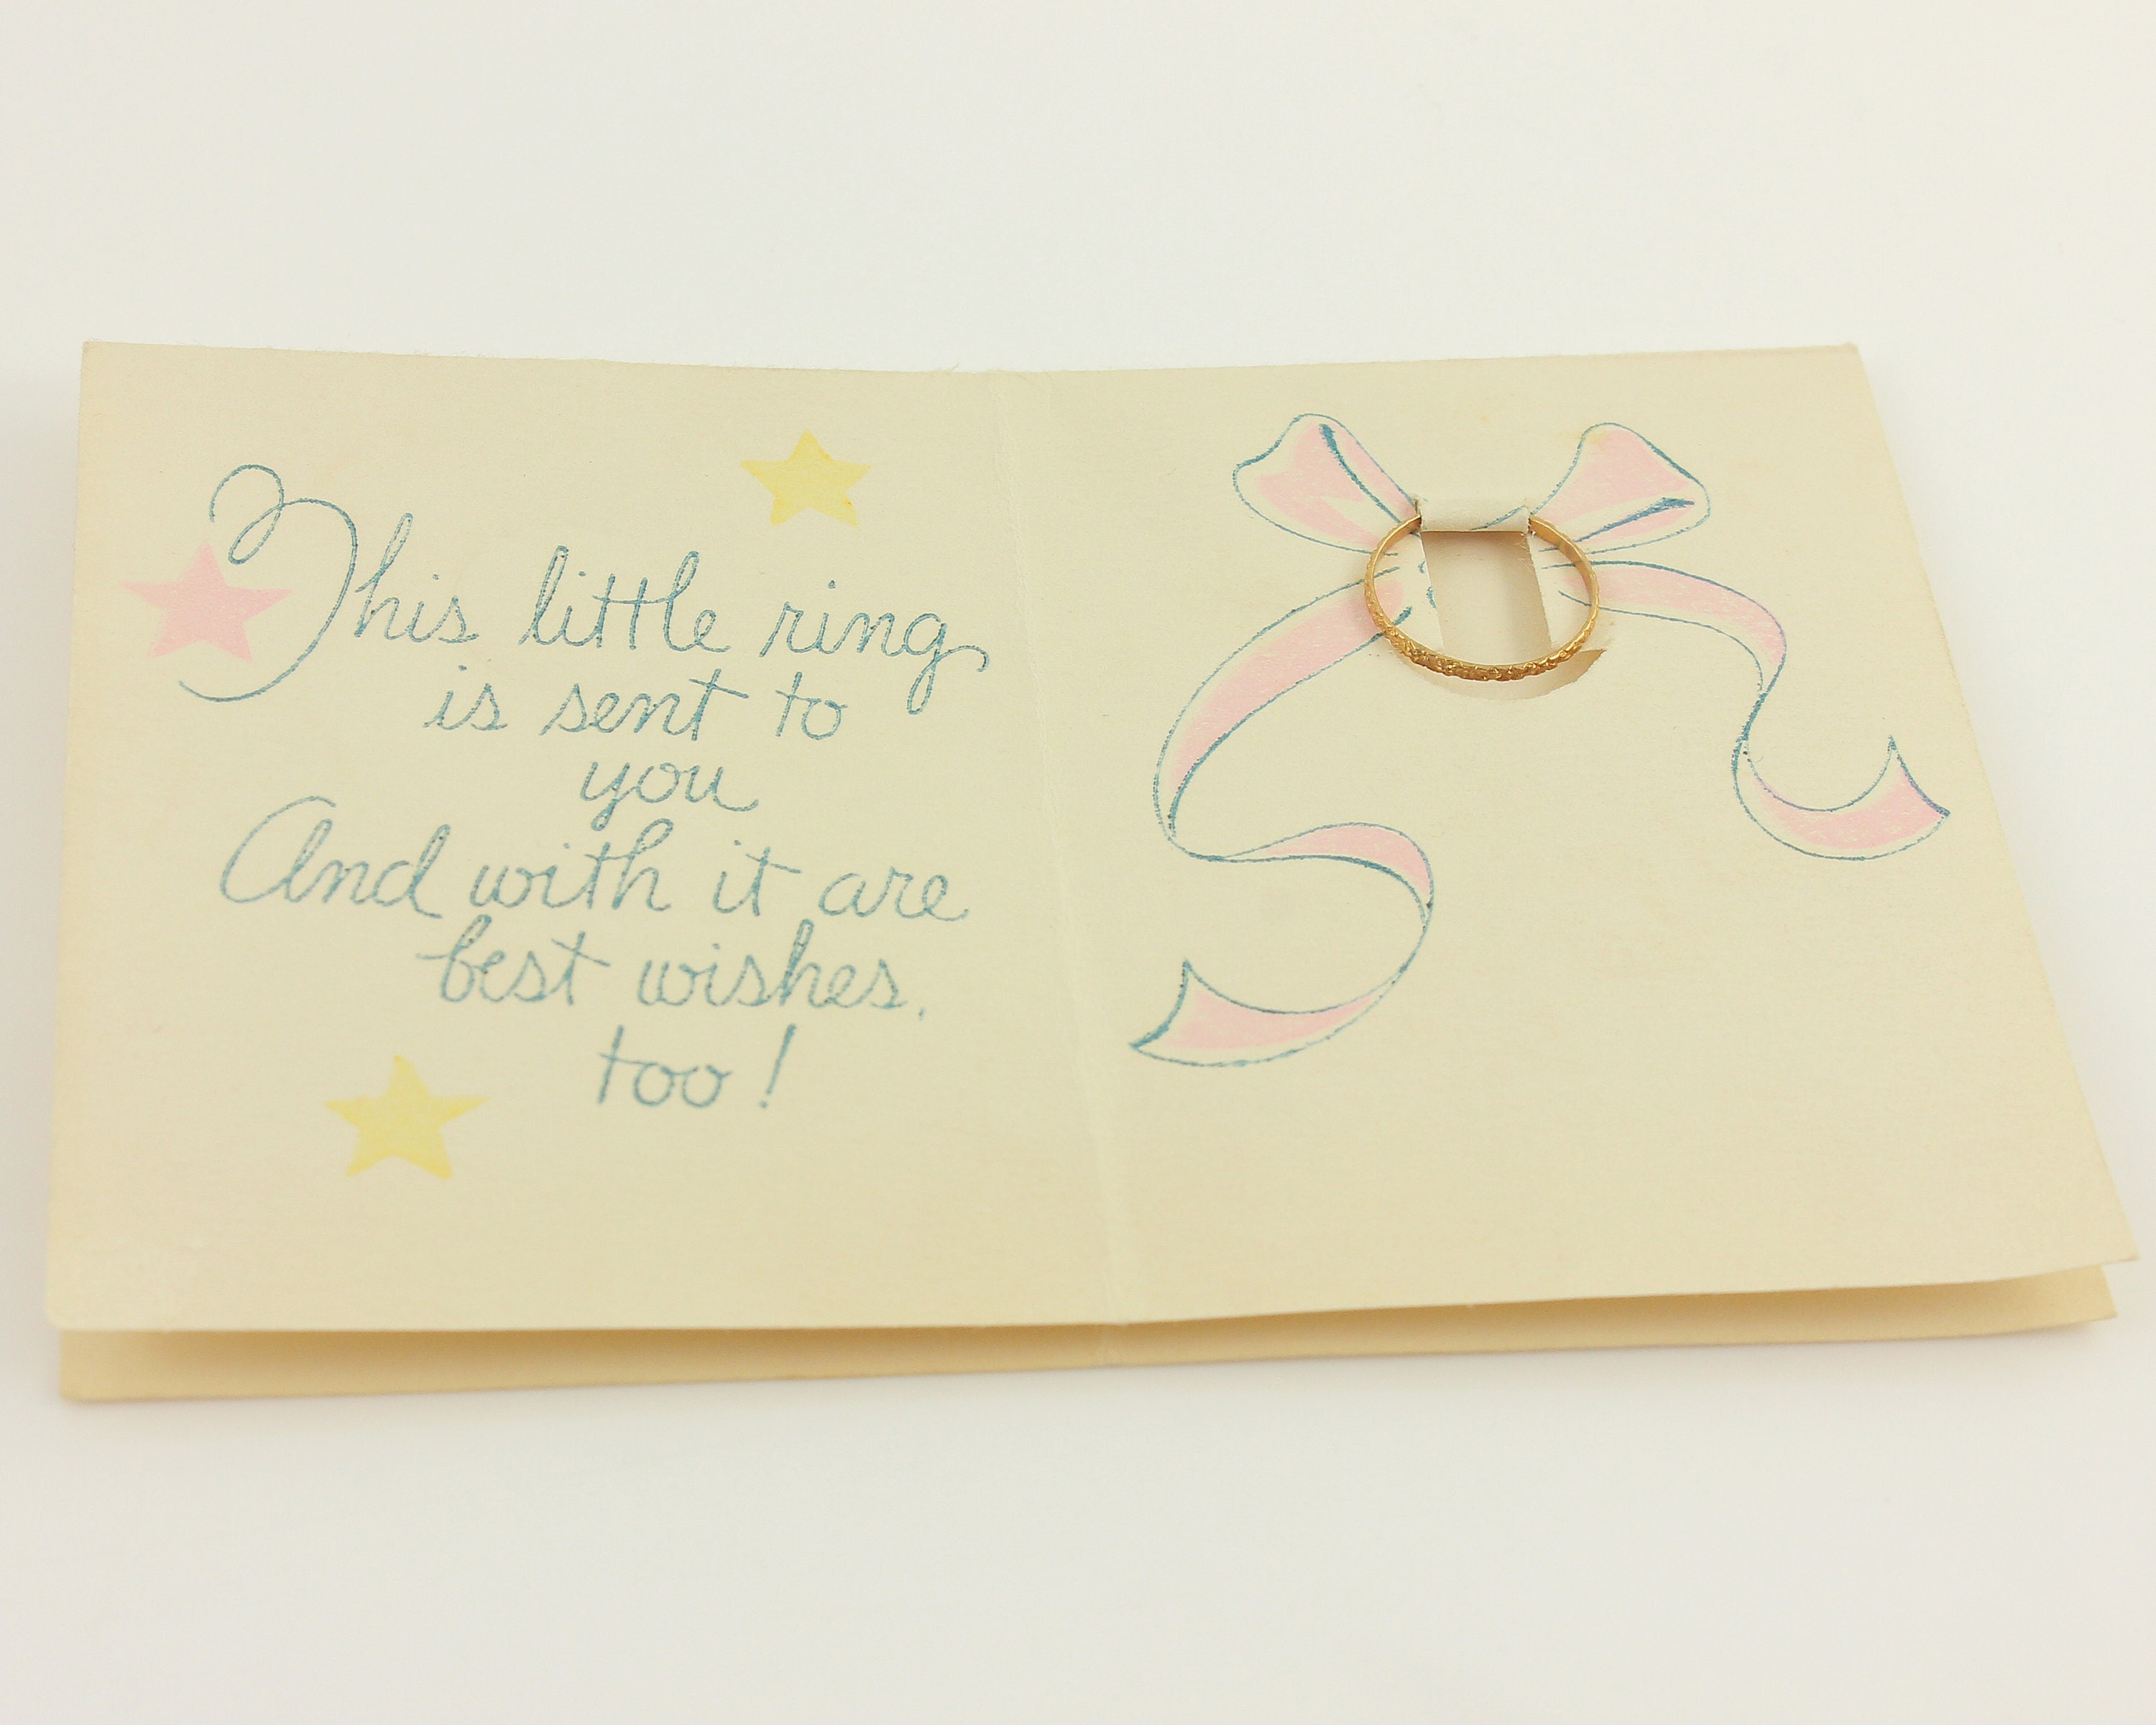 This little ring
is sent to
you
And with it are
best wishes,
too!